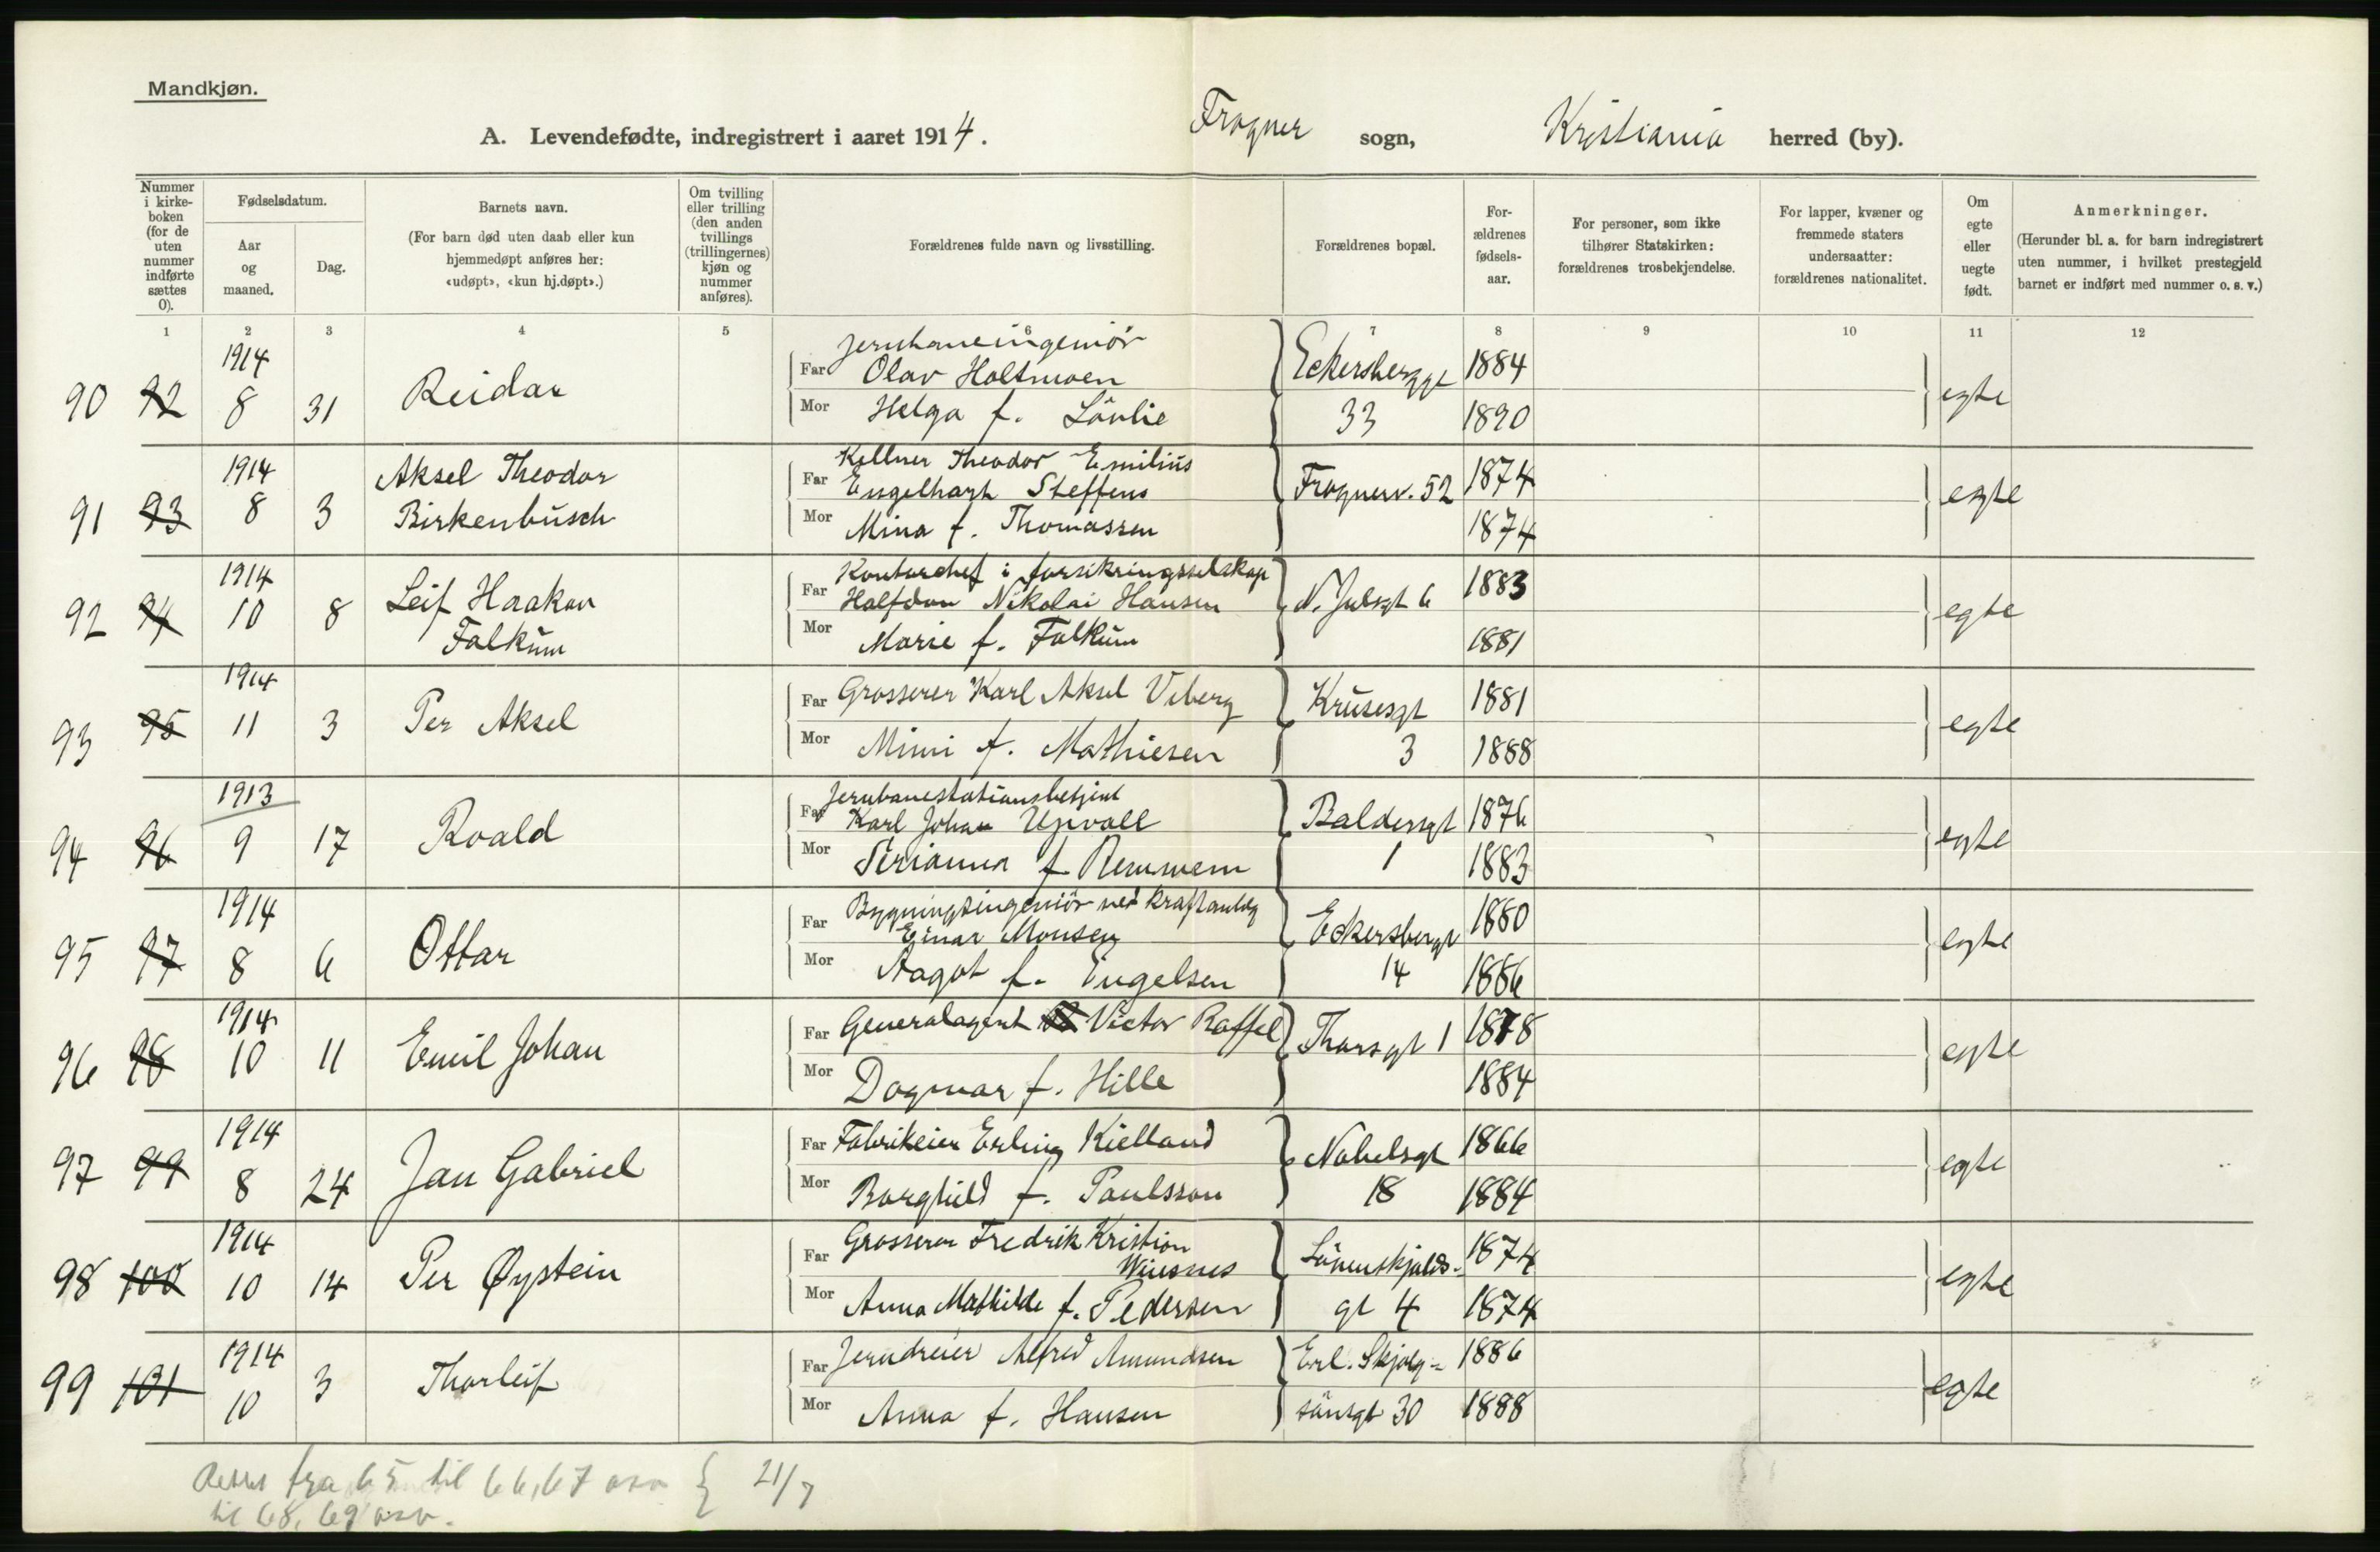 Mandkjøn.
A. Levendefødte, indregistrert i aaret 1914. Frogner sogn, Kristiania herred (by).
Nummer i kirke-boken (for de uten nummer indførte sættes 0).
Fødselsdatum.
Aar og maaned.
Dag.
Barnets navn.
(For barn død uten daab eller kun hjemmedøpt anføres her: «udøpt», «kun hj.døpt».)
Om tvilling eller trilling (den anden tvillings (trillingernes) kjøn og nummer anføres).
Forældrenes fulde navn og livsstilling.
Forældrenes bopæl.
For-ældrenes fødsels-aar.
For personer, som ikke tilhører Statskirken: forældrenes trosbekjendelse.
For lapper, kvæner og fremmede staters undersaatter: forældrenes nationalitet.
Om egte eller uegte født.
Anmerkninger.
(Herunder bl. a. for barn indregistrert uten nummer, i hvilket prestegjeld barnet er indført med nummer o. s. v.)
1 2 3 4 5 6 7 8 9 10 11 12
1914 Jernbaneingeniør
Far Olav Holtmoen Eckersberggt 1884
90 92 8 31 Reidar egte
Mor Helga f. Løvlie 33 1890
1914 Aksel Theodor Kellner Theodor Emilius
Far Engelhart Steffens Frognerv. 52 1874
91 93 8 3 Birkenbusch egte
Mor Mina f. Thomassen 1874
1914 Kontorchef i forsikringsselskap
Far Halfdan Nikolai Hansen N. Julsgt 6 1883
92 94 10 8 Leif Haakon egte
Falkum
Mor Marie f. Falkum 1881
1914
Far Grosserer Karl Aksel Viberg Krusesgt 1881
93 95 11 3 Per Aksel egte
Mor Mimi f. Mathiesen 3 1888
1913 Jernbanestationsbetjent
Far Karl Johan Upvall Baldersgt 1876
94 96 9 17 Roald egte
Mor Serianna f 1 1883
1914 Bygningsingeniør ved kraftanlæg
Far Einar Monsen Eckersbergt 1880
95 97 8 6 Ottar egte
Mor Aagot f. Engelsen 14 1886
1914
Far Generalagent Victor Raffel Thorsgt 1 1878
96 98 10 11 Emil Johan egte
Mor Dagmar f. Hille 1884
1914
Far Fabrikeier Erling Kielland Nobelsgt 1866
97 99 8 24 Jan Gabriel egte
Mor Borghild f. Paulsson 18 1884
1914 Grosserer Fredrik Kristian
Far Winsnes Løvenskjolds- 1874
98 100 10 14 Per Øystein egte
Mor Anna Mathilde f. Pedersen gt 4 1874
1914
Far Jerndreier Alfred Amundsen Erl. Skjalg- 1886
99 101 10 3 Thorleif egte
Mor Anna f. Hansen sønsgt 30 1888
Rettet fra 65 til 66, 67 osv } 21/7
til 68, 69 osv.